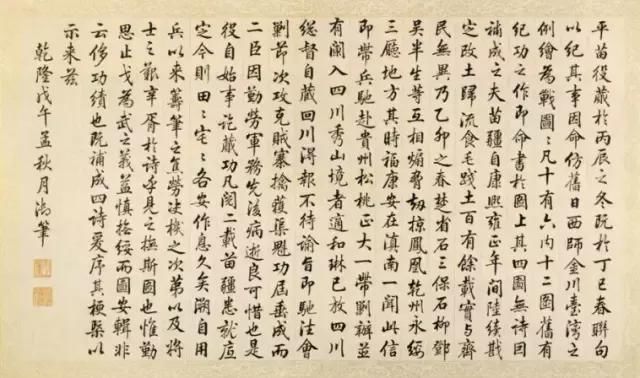 平苗役蕆於丙辰之冬既於丁巳春聯句
以紀其事因命仿舊日西師金川臺灣之
例繪為戰圖〻凡十有六內十二圖舊有
紀功之作即命書於圖上其四圖無詩因
補成之夫苗疆自康熙雍正年間陸續戡
定改土歸流食毛踐土百有餘載實与齊
民無異乃乙卯之春楚省石三保石柳鄧
吳半生等互相煽脅劫掠鳳凰乾州永綏
三廳地方其時福康安在滇南一聞此信
即帶兵馳赴貴州松桃正大一帶剿辦並
有闌入四川秀山境者適和琳已放四川
總督自藏回川得報不待諭旨即馳往會
剿節次攻克賊寨擒獲渠魁功屆垂成而
二臣因勤勞軍務先後病逝良可惜也是
役自始事訖蕆功凡閱二載苗疆悉就底
定今則田〻宅〻各安作息久矣溯自用
兵以來籌筆之宣勞決機之次第以及將
士之艱辛胥於詩乎見之撫斯圖也惟勤
思止戈為武之義益慎撫綏而圖安輯非
云侈功績也既補成四詩爰序其梗槩以
示來茲
乾隆戊午孟秋月御筆